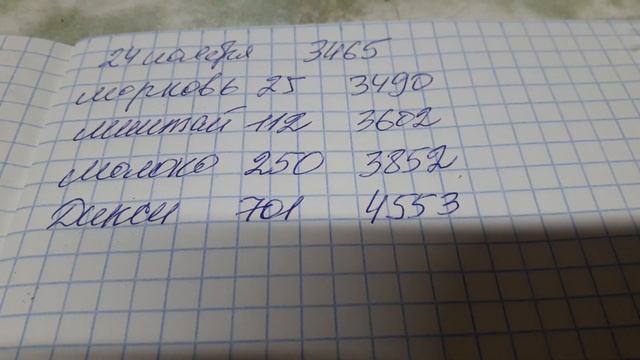 24 ноября 3465
морковь 25 3490
минтай 112 3602
молоко 250 3852
Дикси 701 4553